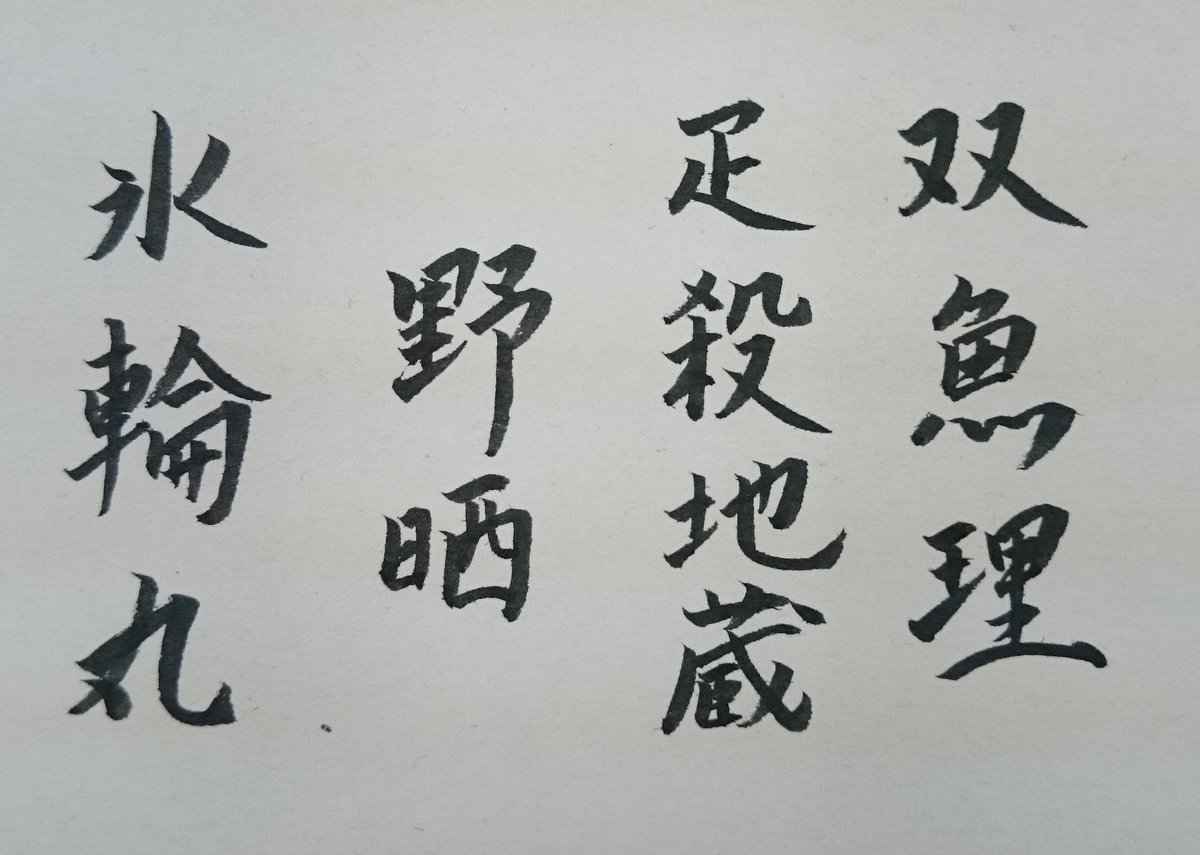 双魚理
疋殺地蔵
野晒
氷輪丸